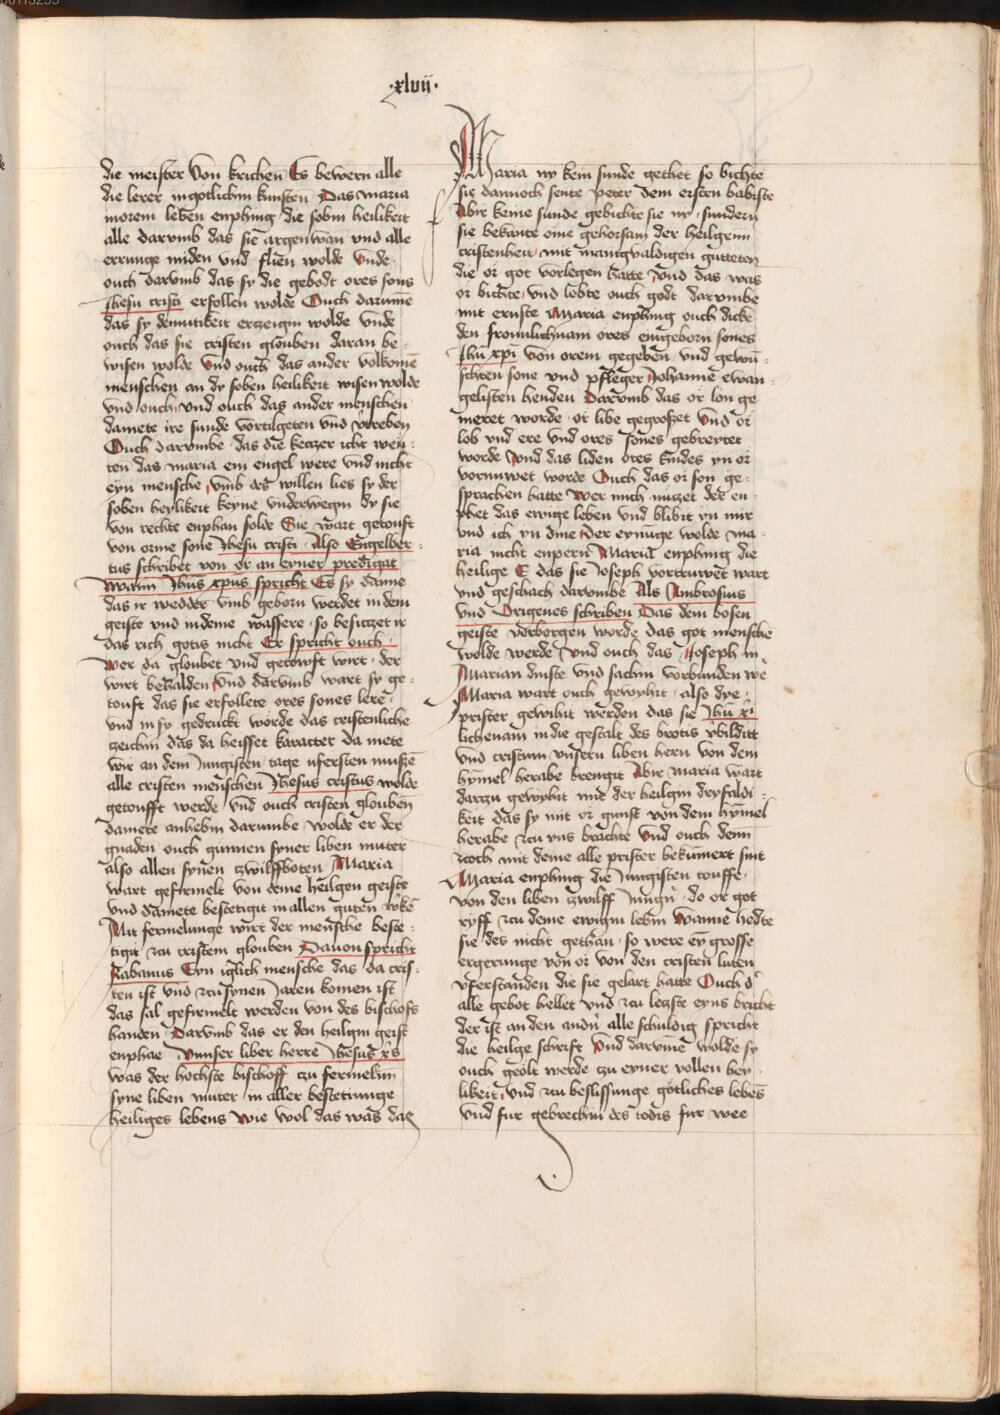 ·xlvii·
die meister von krichen Es bewern alle
die lerer in gotlichin kunsten Das maria
in orem leben enphing die sobin heilikeit
alle darumb das sie argenwan vnd alle
errunge miden vnd flien wolde vnde
ouch darumb das sy die gebodt ores sons
Jhesu cristi erfollen wolde Ouch darume
das sy demutikeit erczeigin wolde vnde
ouch das sie cristen glouben daran be
wisen wolde vnd ouch das ander volkome
menschen an dy soben heilikeit wisen wolde
vnd ouch vnd ouch das ander menschen
damete ire sunde vortilgeten vnd vtreben
Ouch darumbe das die ketczer icht wen
ten das maria ein engel were vnd nicht
eyn mensche vmb des willen lies sy der
soben heylikeit keyne vnderwegin dy sie
von rechte enphan solde Sie wart getouft
von orme sone Jhesu cristi Also Engelber
tus schribet von or an eyner predigat
wann Jhus xpus spricht Es sy danne
das ir wedder vmb geborn werdet in dem
geiste vnd in deme wassere so besitczet ir
das rich gotis nicht Er spricht ouch
Wer da gloubet vnd getowft wirt der
wirt behalden vnd darumb wart sy ge
touft das sie erfollete ores sones lere
vnd in sy gedruckt worde das cristenliche
zceichin das da heisset karacter da mete
wir an dem Jungisten tage vfersten musze
alle cristen menschen Jhesus cristus wolde
getoufft werde vnd ouch cristen glouben
damete anhebin darumbe wolde er der
gnaden ouch gunnen syner liben muter
also allen synen zwilffboten Maria
wart gefirmelt von deme heilgen geiste
vnd damete bestetigit in allen guten wke
Mit fermelunge wirt der mensche beste
tigit zcu cristem glouben Dauon spricht
Rabanus Eyn iglich mensche das da cris
ten ist vnd zcu synen Jaren komen ist
das sal gefirmelt werden von des bischofs
handen Darumb das er den heilgin geist
enphae vnnser liber herre Jhesus xps
was der hochste bischoff zu fermelin
syne liben muter in aller bestetiunge
heiliges lebens wie wol das was das
Maria ny kein sunde gethet so bichte
sie dannoch sente peter dem ersten babiste
Abir keine sunde gebichte sie ny sundern
sie bekante eine gehorsam der heilgenn
cristenheit mit manigualdigen gutteten
die or got vorlegen hatte vnd das was
or bichte vnd lobte ouch godt darumbe
mit ernste Maria enphing ouch dicke
den fronnlichnam ores eingeborn sones
Jhu xpi von orem gegeben vnd gewu
schten sone vnd pfleger Johanne ewan
gelisten henden Darumb das or lon ge
meret worde or libe gegroszet vnd or
lob vnd ere vnd ores sones gebreytet
worde vnd das liden ores kindes yn or
vornuwet worde Ouch das or son ge
sprachen hatte Wer mich nutzet der en
phet das ewige leben vnd blibit yn mir
vnd ich yn dme Der eynunge wolde ma
ria nicht enpern Maria enphing die
heilige E das sie Joseph vortruwet wart
vnd geschach darumbe Als Ambrosius
vnd Origenes schriben Das dem bosen
geiste vorborgen worde das got mensche
wolde werde vnd ouch das Joseph in
Marian dinste vnd sachin vorbunden we
Maria wart ouch gewyhit also dye
prister gewihit werden das sie Jhu xi
lichenam in die gestalt des brotis vbilditt
vnd cristum vnsern liben hern von dem
hymel herabe brengit Abir maria wart
darzu gewyhit mit der heilgin dryfaldi
keit das sy mit or gunst von dem hymel
herabe zcu vns brachte vnd ouch denn
noch mit deme alle prister bekumert sint
Maria enphing die Jungisten touffe
von den liben zwilff Jungn do or got
ryff zcu deme ewigin lebin Wanne hedte
sie des nicht gethan so were ey grosse
ergerunge von or von den cristen luten
vferstanden die sie gelart hatte Ouch d
alle gebot hellet vnd zcu letste eyns bricht
der ist an den andn alle schuldig spricht
die heilge schrift vnd darume wolde sy
ouch geolt werde zu eyner vollen hey
likeit vnd zcu beslissunge gotliches lebes
vnd fur gebrechin des todis fur wee